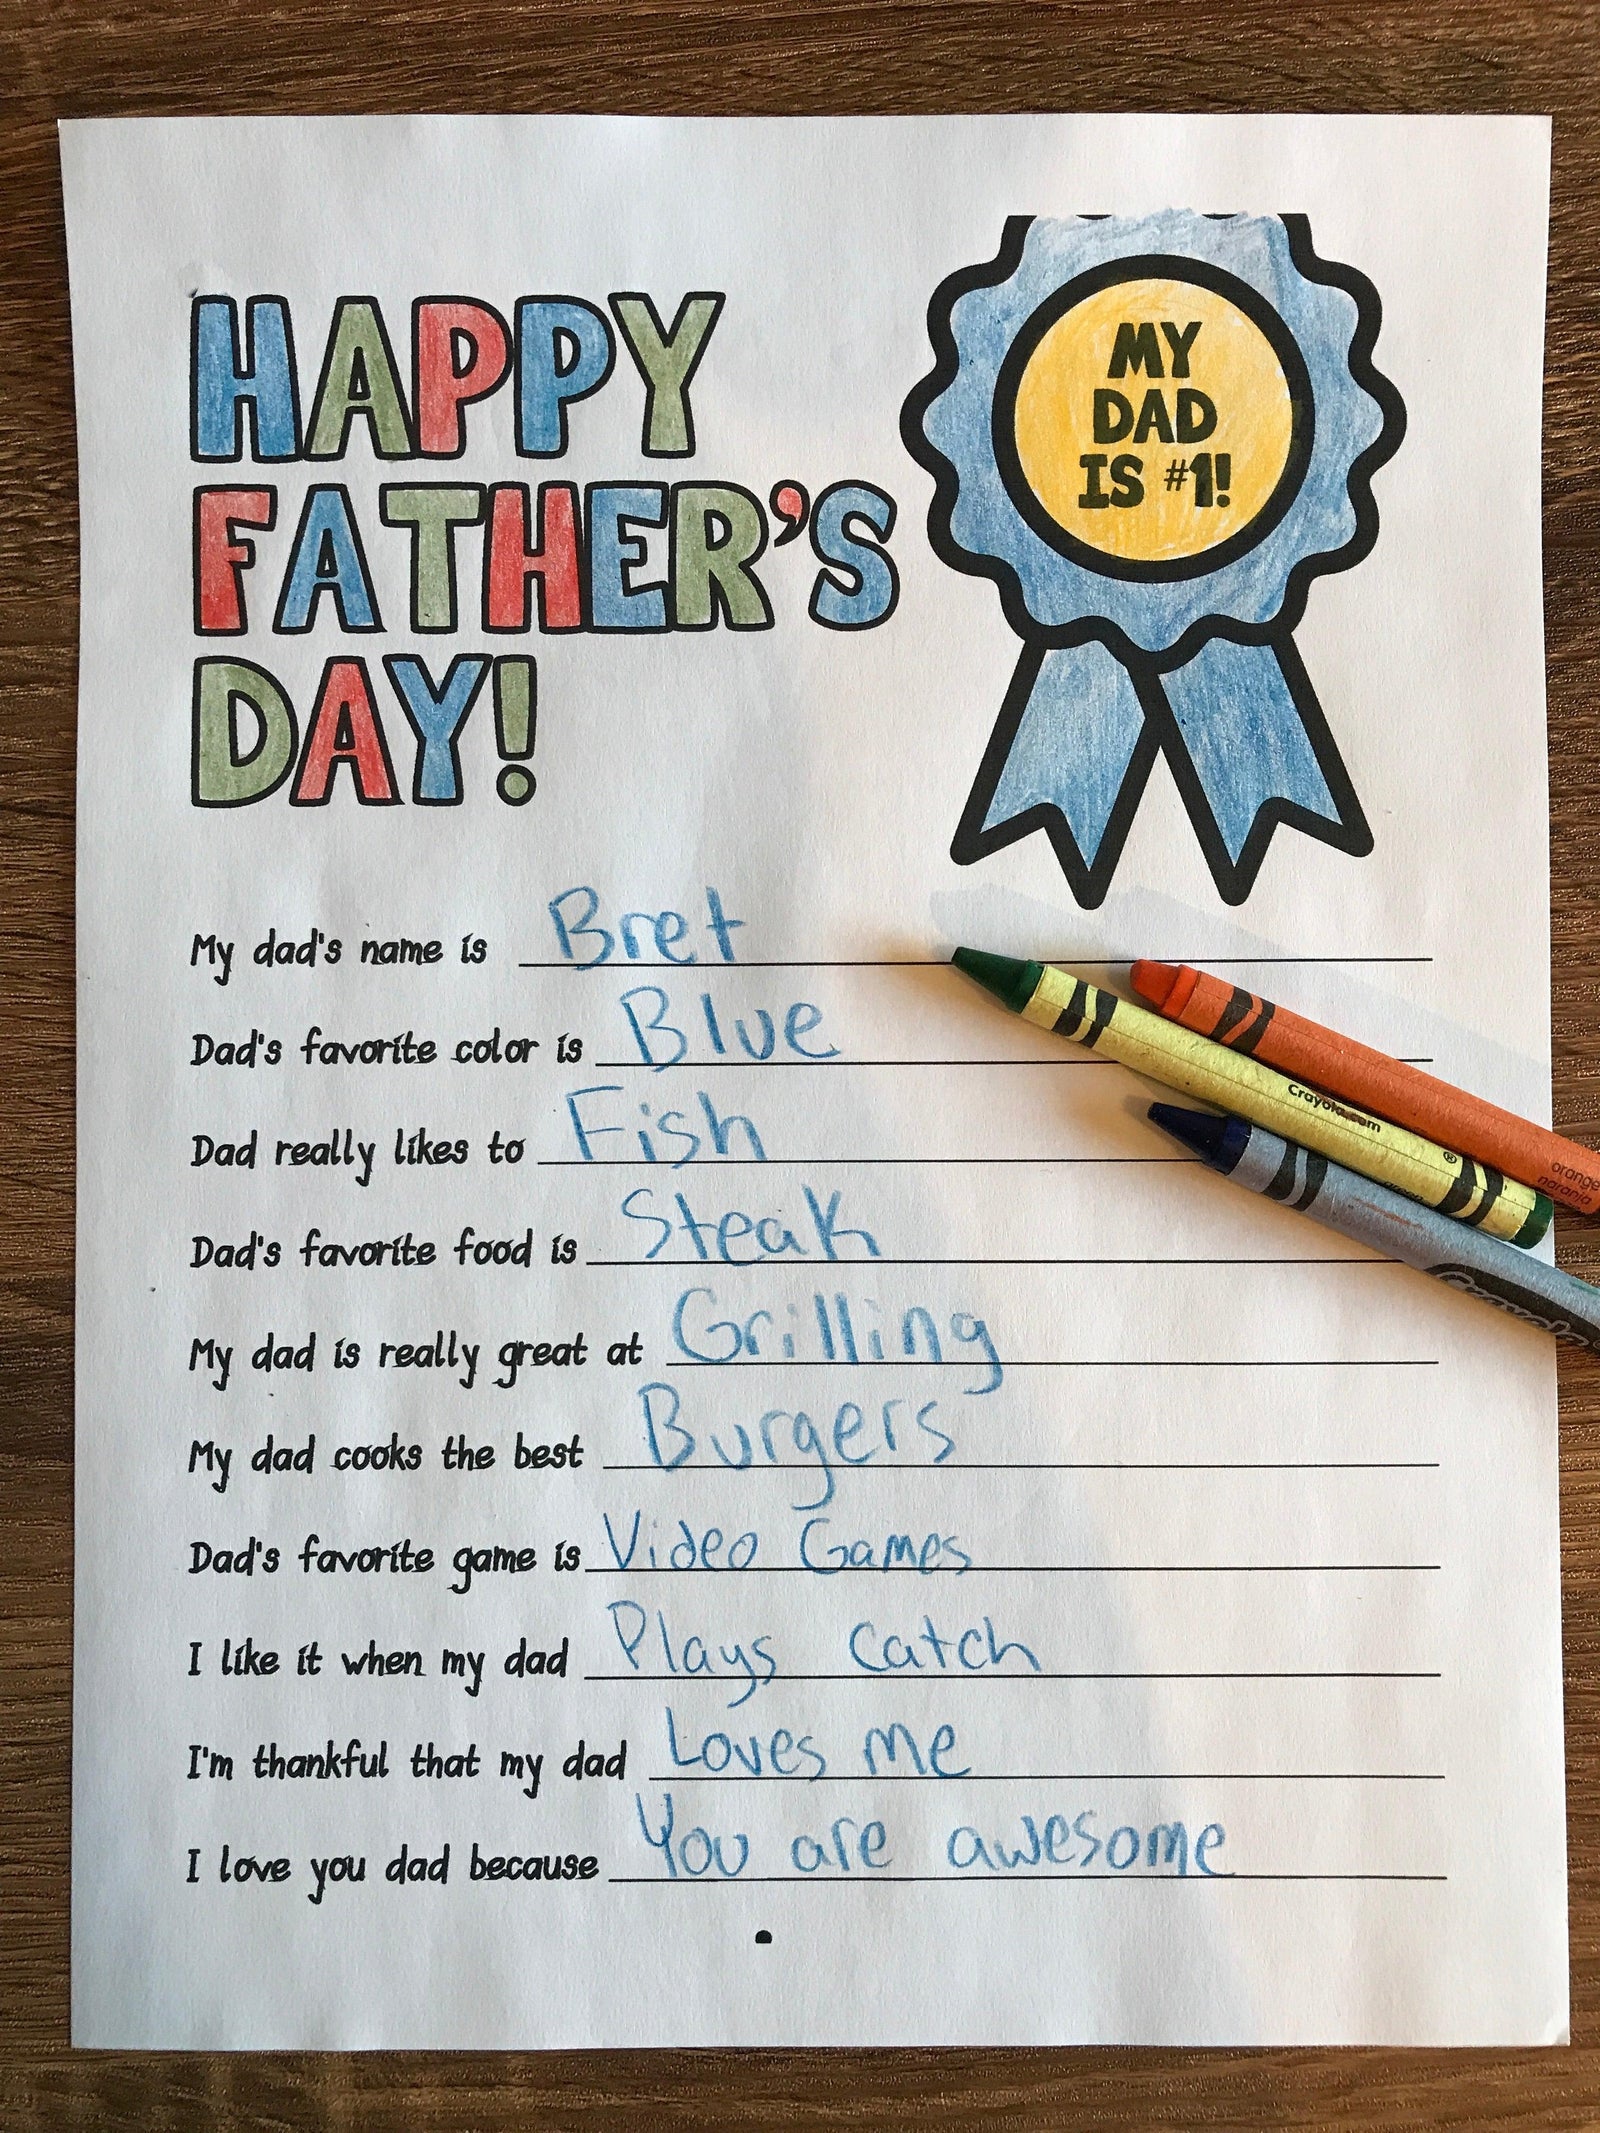 HAPPY
FATHER'S
DAY!
MY
DAD
IS #1!
My dad's name is Bret
Dad's favorite color is Blue
Dad really likes to Fish
Dad's favorite food is Steak
My dad is really great at Grilling
My dad cooks the best Burgers
Dad's favorite game is Video Games
I like it when my dad Plays catch
I'm thankful that my dad Loves me
I love you dad because You are awesome
Crayola.com
®
orange
naranja
Crayola